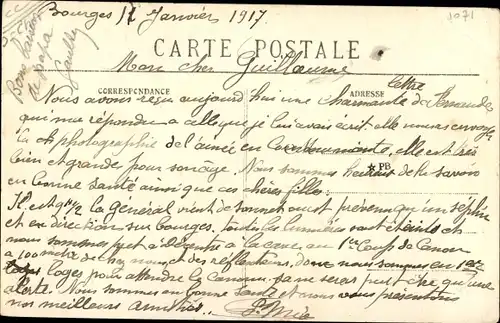 Bourges 12 Janvier 1917
1071
Bons baisers
de papa
CARTE POSTALE
Mon cher Guillaume
CORRESPONDANCE
ADRESSE
lettre
Nous avons reçu aujourd'hui une charmante de Fernande
qui me répondra à celle que je lui avais écrit. elle nous envoye
la photographie de l'ainée en Communiante, elle est très
bien et grande pour son âge. Nous sommes heureux de la savoir
★ PB
en bonne santé ainsi que ces chères filles.
Il est 9h 1/2 la Général vient de sonner on est prévenu qu'un zéplin
est en direction sur Bourges. toutes les lumières sont éteintes et
nous sommes pret à descendre à la cave au 1er Coup de Canon
à 100 mètres de chez nous et des réflecteurs, donc nous sommes en 1ère
loges pour attendre la canonnade ce ne sera peut être qu'une
alerte. Nous sommes en bonne santé et nous vous présentons
nos meilleurs amitiés.